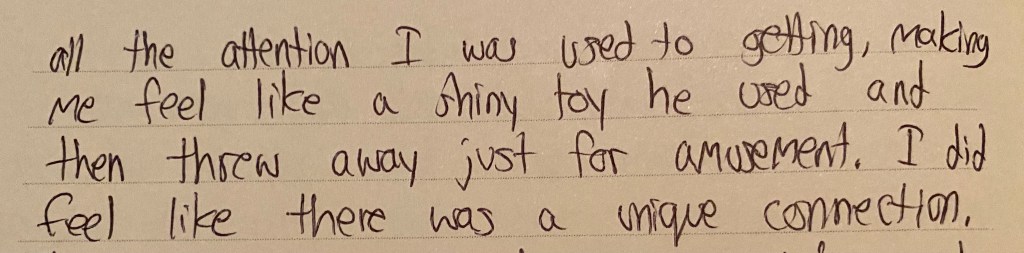 all the attention I was used to getting, making
me feel like a shiny toy he used and
then threw away just for amusement. I did
feel like there was a unique connection.